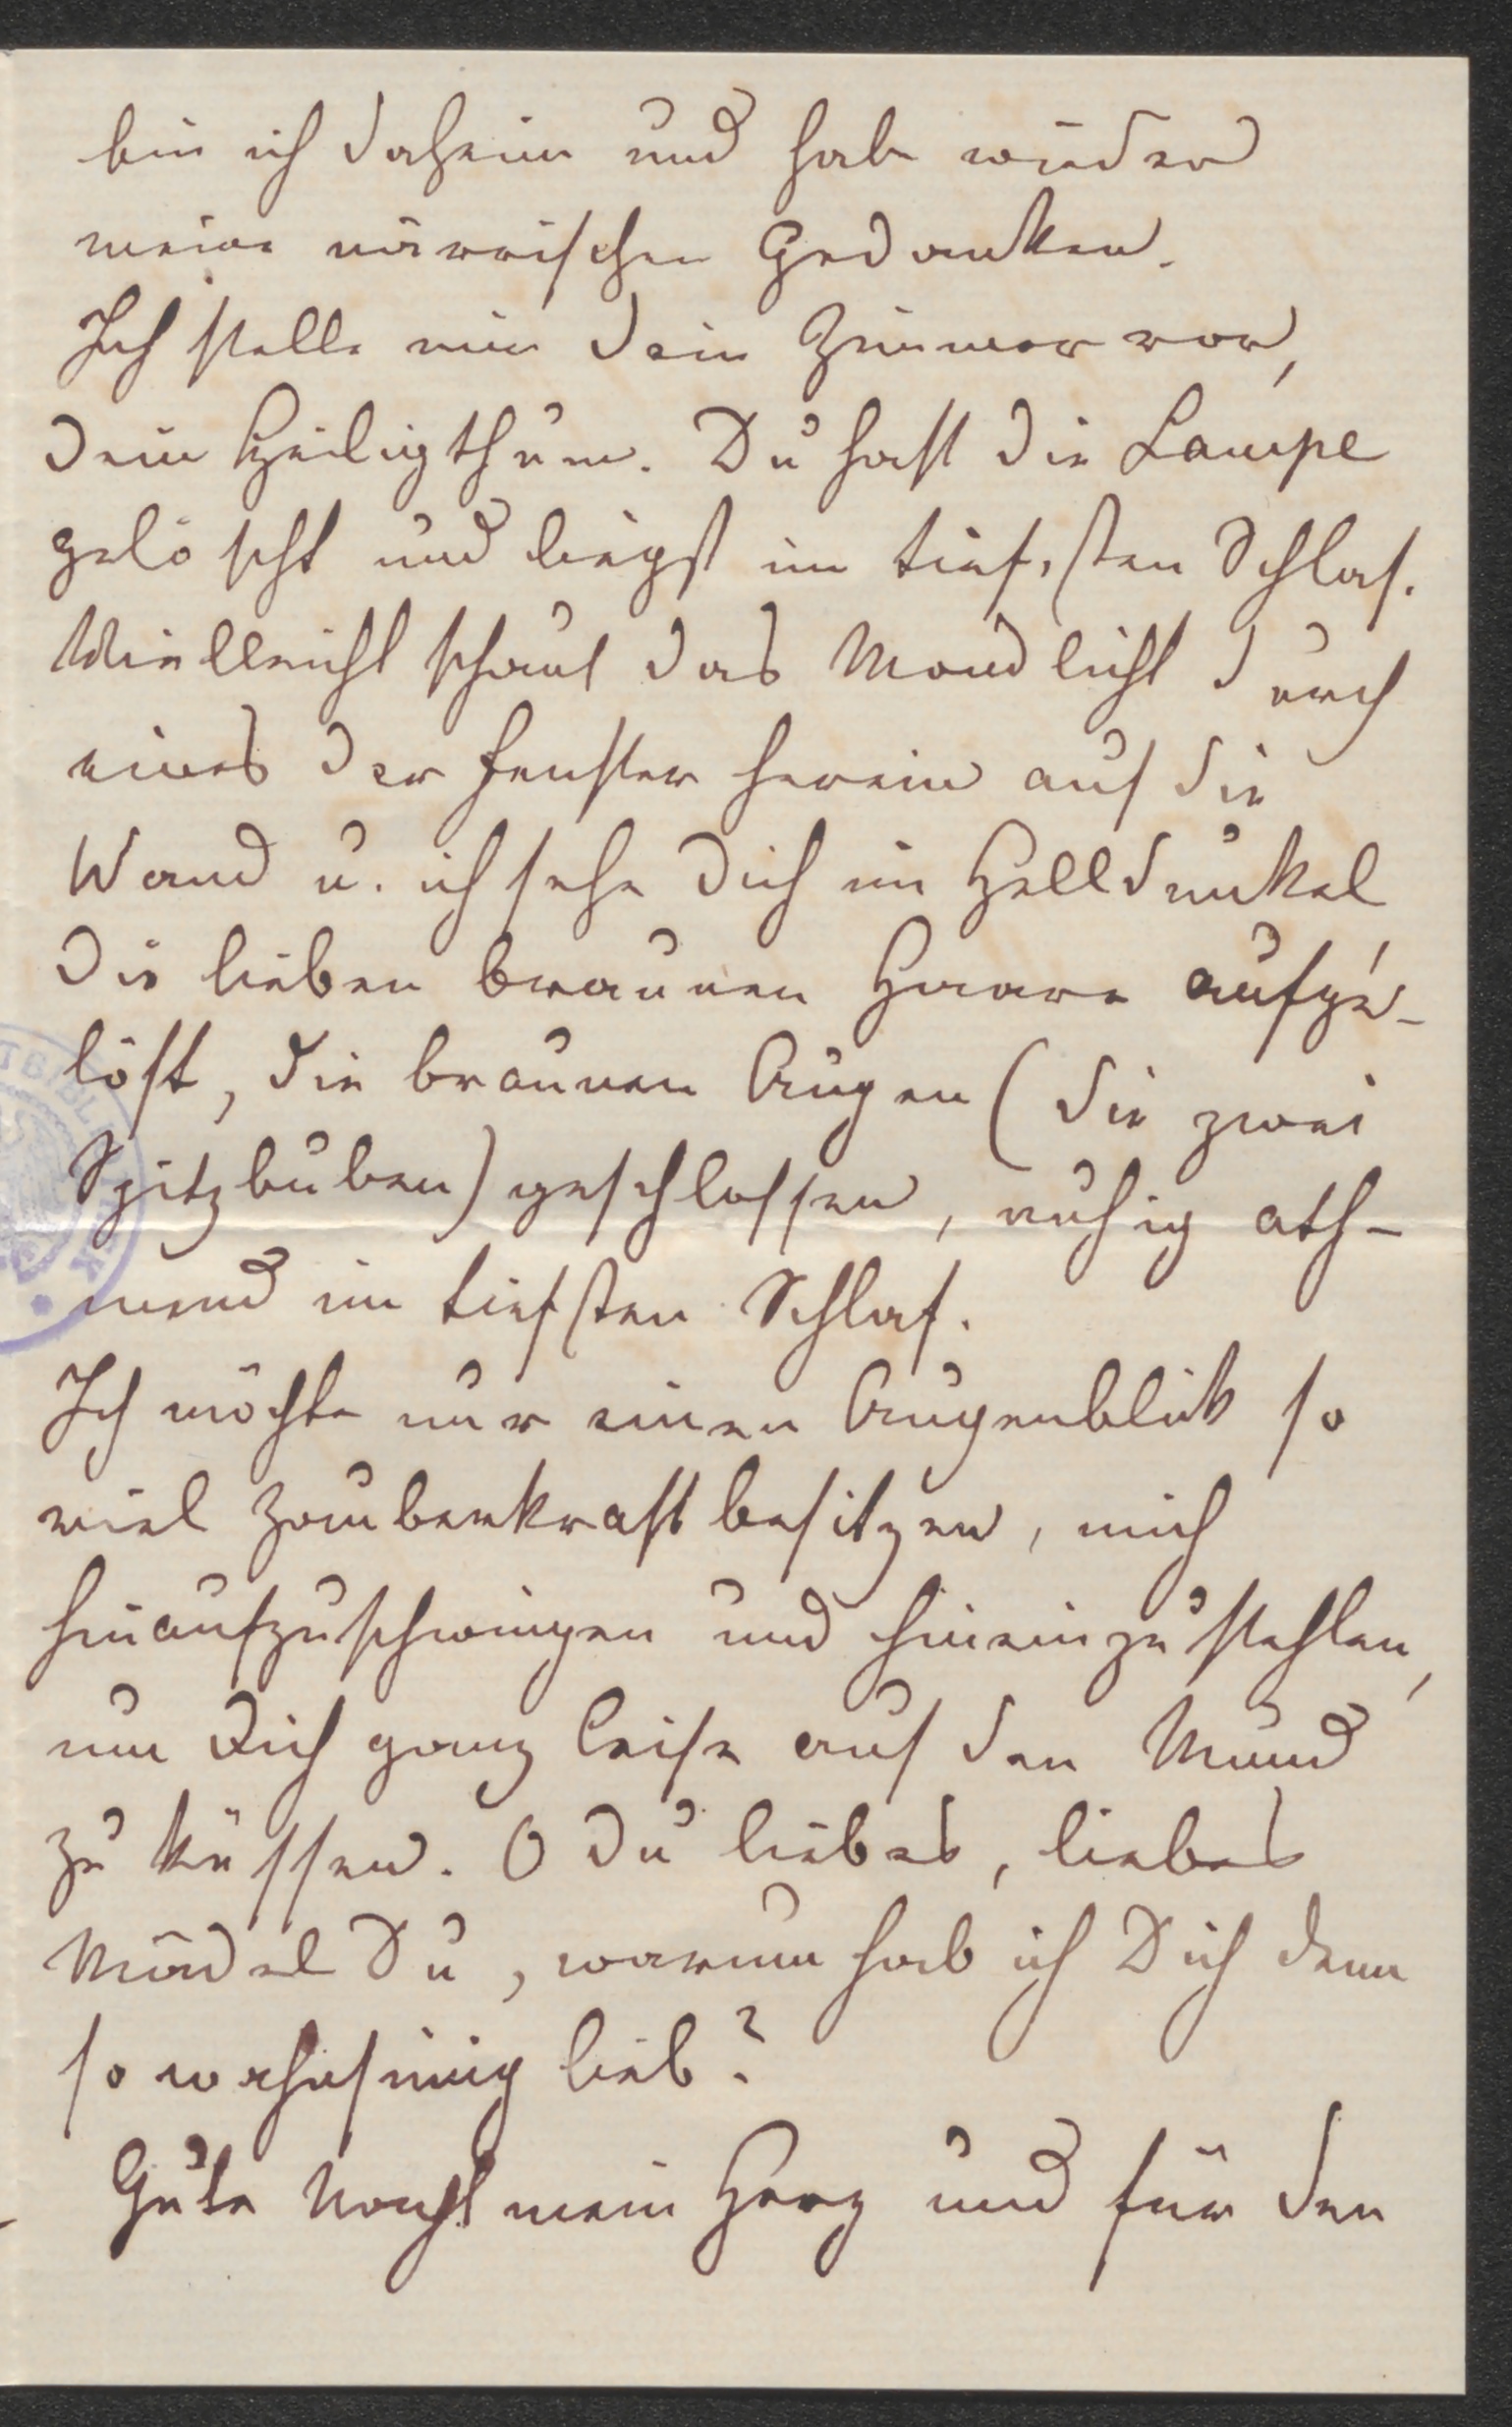 bin ich daheim und hab wieder
meine närrischen Gedanken.
Ich stelle mir Dein Zimmer vor,
Dein Heiligthum. Du hast die Lampe
gelöscht und liegst im tiefsten Schlaf.
Vielleicht schaut das Mondlicht durch
eines der Fenster herein auf die
Wand u. ich sehe Dich im Helldunkel
die lieben braunen Haare aufge-
löst, die braunen Augen (die zwei
Spitzbuben) geschlossen, ruhig ath-
mend im tiefsten Schlaf.
Ich möchte nur einen Augenblick so
viel Zauberkraft besitzen, mich
hinaufzuschwingen und hineinzustehlen,
um Dich ganz leise auf den Mund
zu küssen. O Du liebes, liebes
Mädel Du, warum hab ich Dich denn
so wahnsinnig lieb?
Gute Nacht mein Herz und für den